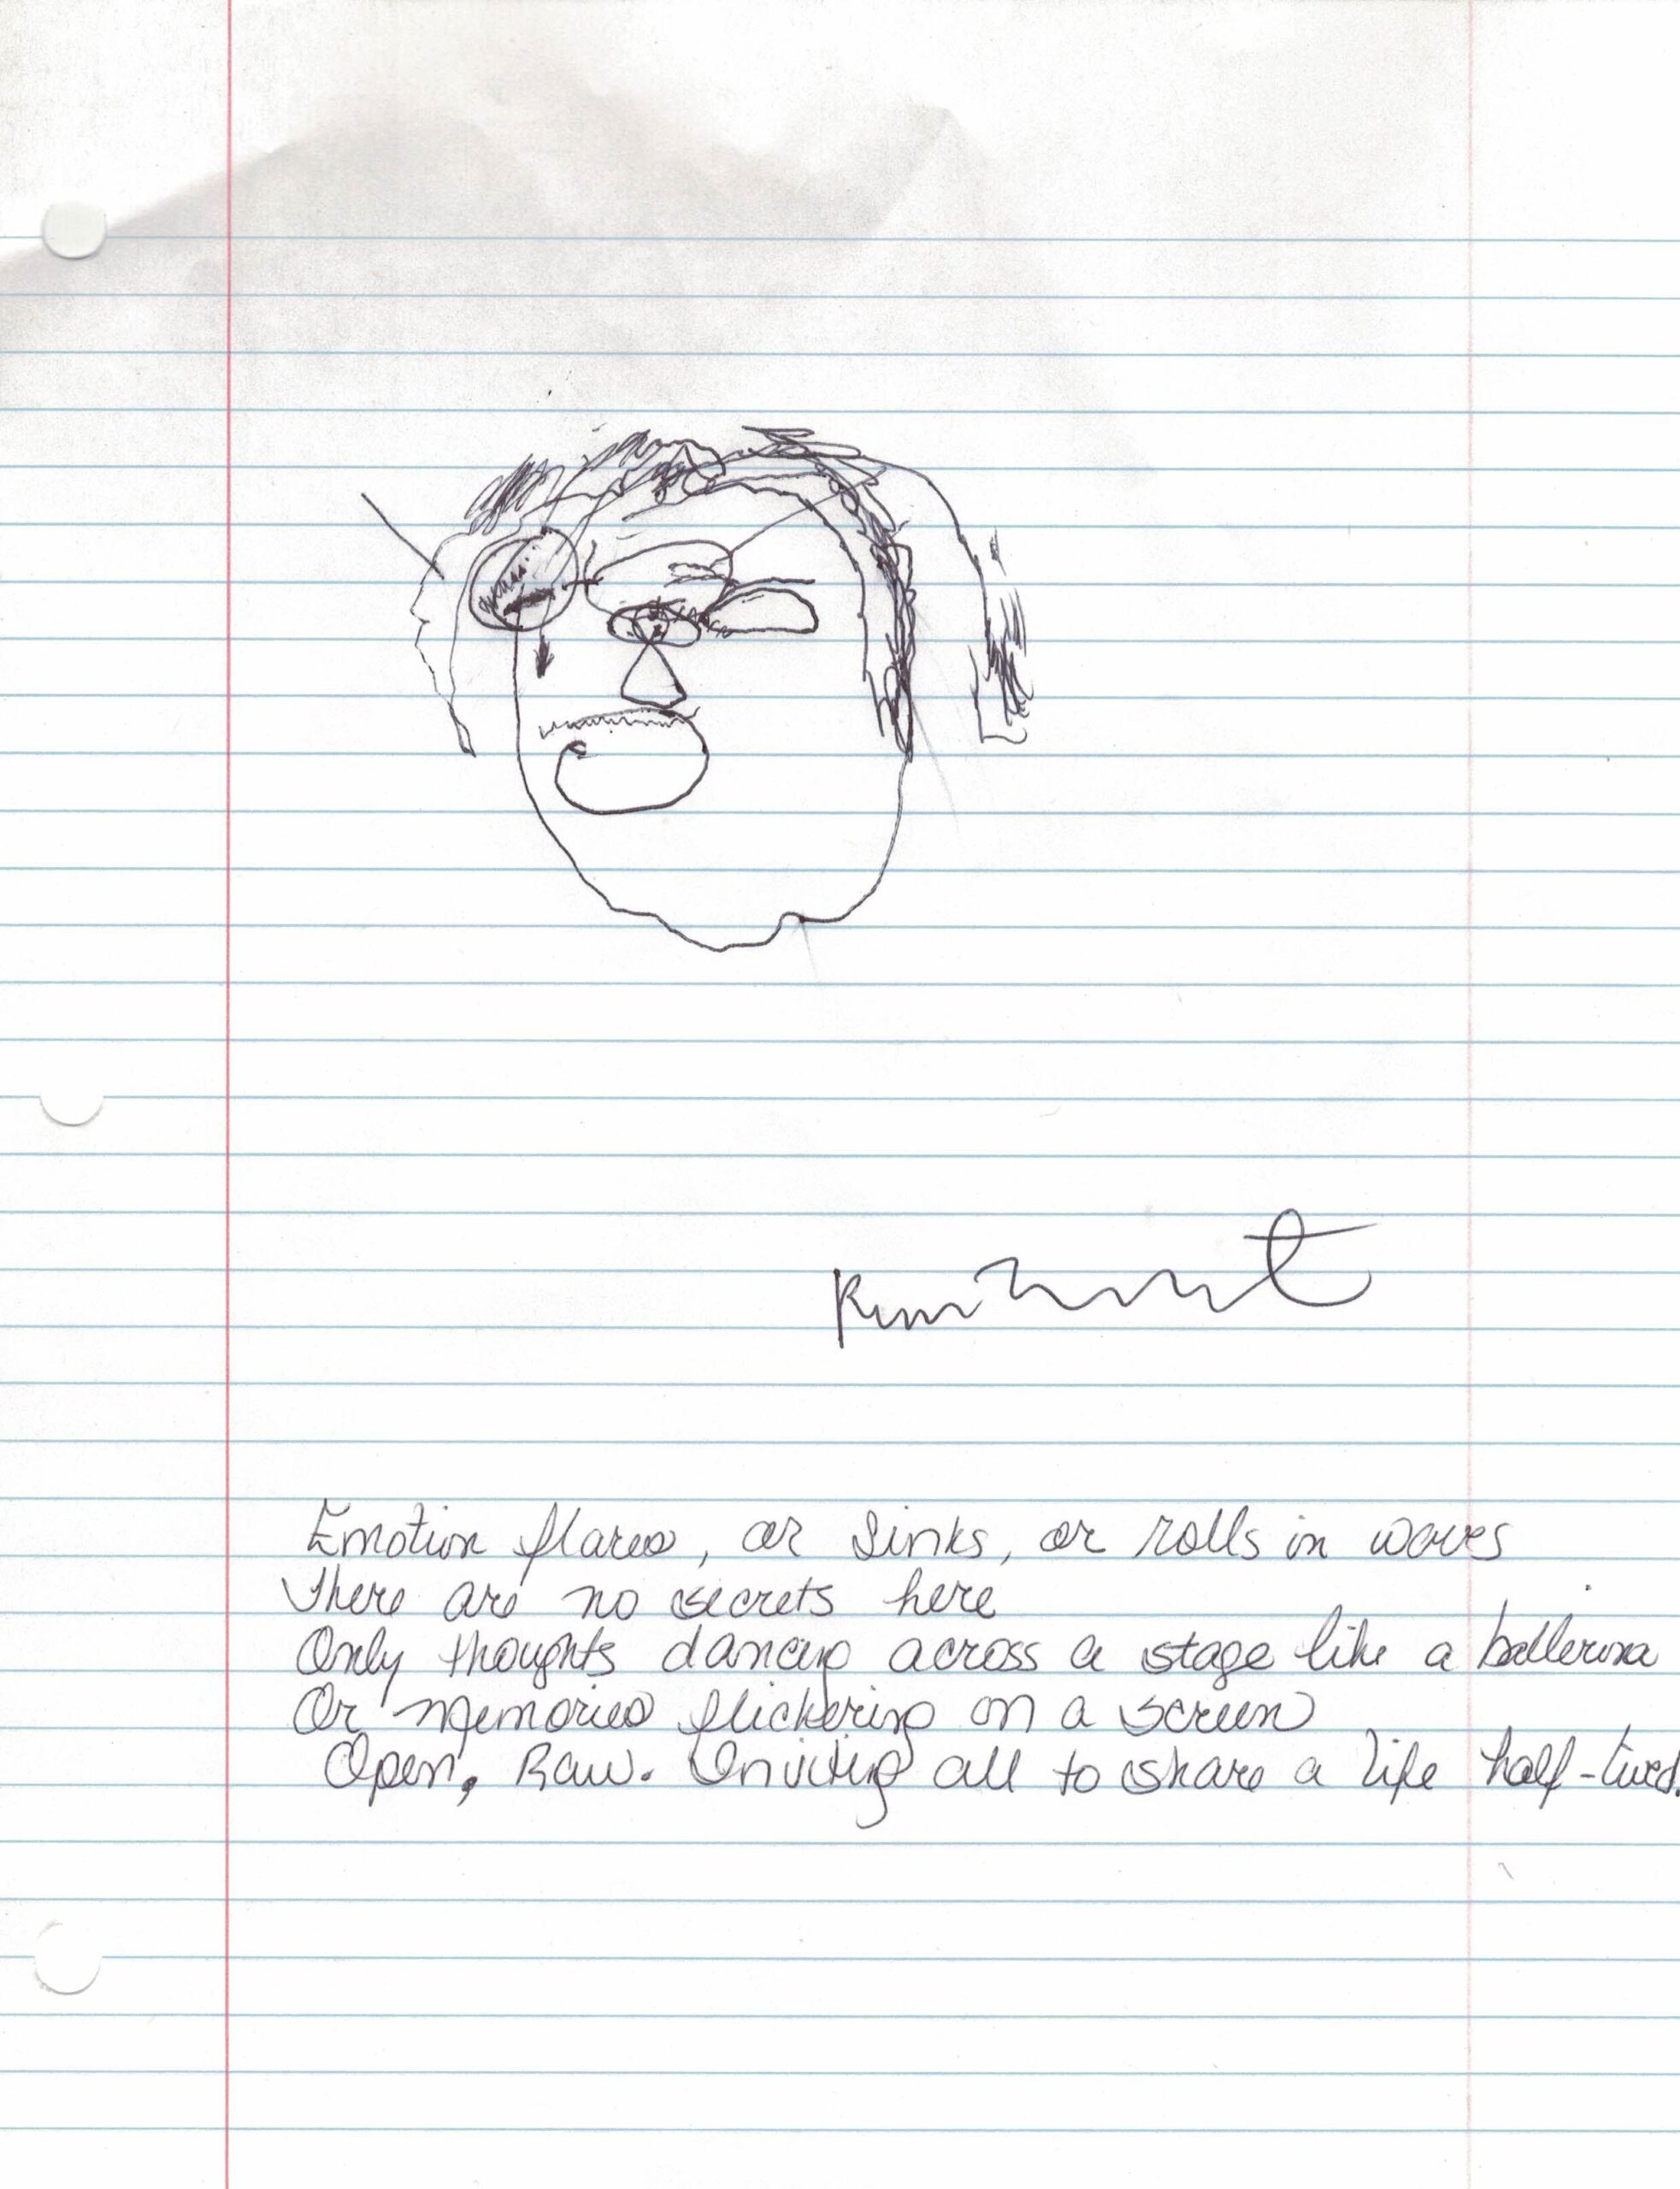 Emotion flares, or sinks, or rolls in waves
There are no secrets here
Only thoughts dancing across a stage like a ballerina
Or memories flickering on a screen
Open, Raw. Inviting all to share a life half-lived.